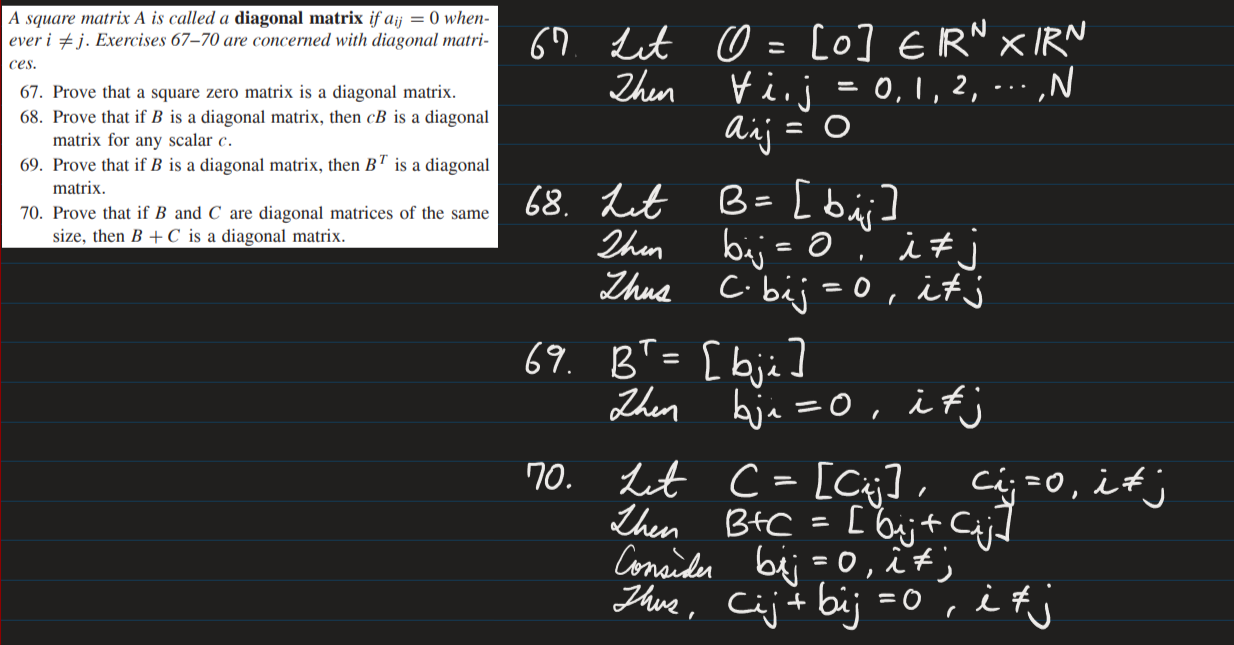 A square matrix A is called a diagonal matrix if aij = 0 when-
ever i ≠ j. Exercises 67–70 are concerned with diagonal matri-
ces.
67. Prove that a square zero matrix is a diagonal matrix.
68. Prove that if B is a diagonal matrix, then cB is a diagonal
matrix for any scalar c.
69. Prove that if B is a diagonal matrix, then B^T is a diagonal
matrix.
70. Prove that if B and C are diagonal matrices of the same
size, then B + C is a diagonal matrix.
67. Let O = [0] ∈ ℝ^N × ℝ^N
Then ∀ i,j = 0, 1, 2, ..., N
aij = 0
68. Let B = [bij]
Then bij = 0, i ≠ j
Thus C·bij = 0, i ≠ j
69. B^T = [bji]
Then bji = 0, i ≠ j
70. Let C = [Cij], Cij = 0, i ≠ j
Then B+C = [bij + Cij]
Consider bij = 0, i ≠ j
Thus, Cij + bij = 0, i ≠ j